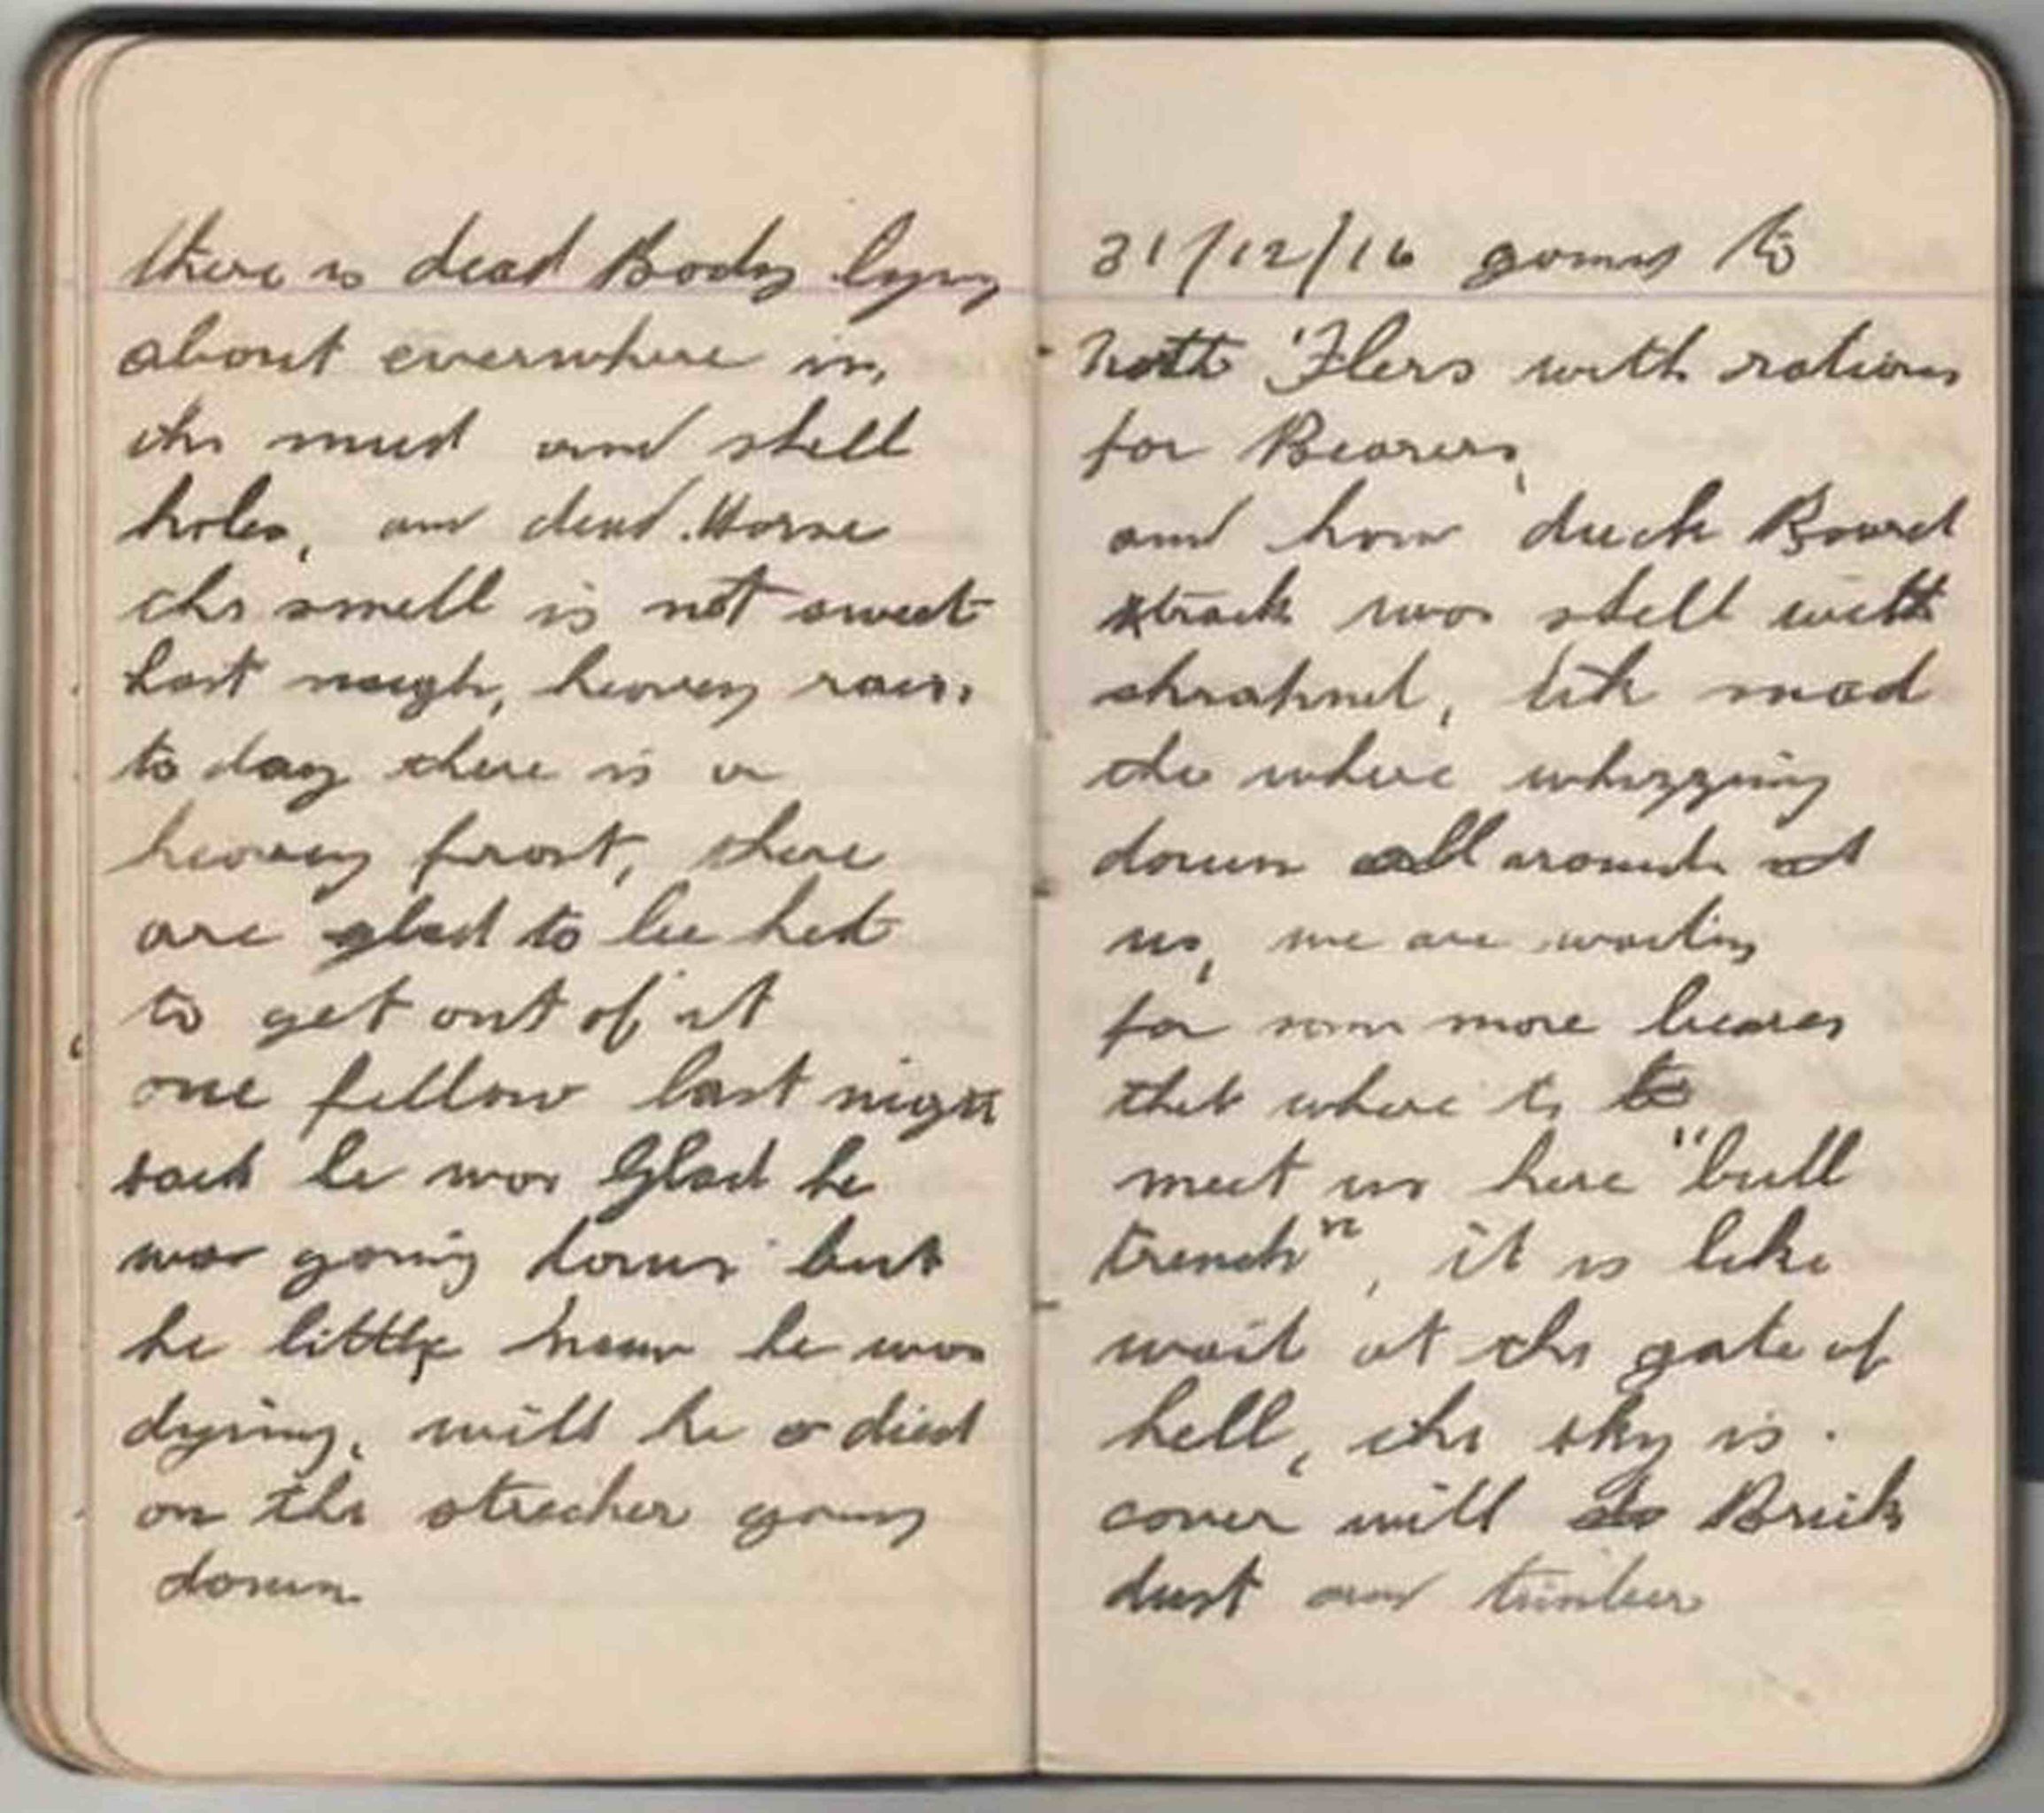 there is dead Body lying
about everwhere in,
the mud and shell
holes, and dead Horse
the smell is not sweet
Last neigh, heavey rain,
to day there is a
heavey frost, there
are glad to be hed
to get out of it
one fellow last night
said he was Glad he
was going down but
he little knew he was
dyring, will he died
on the strecher going
down
31/12/16 going to
North "Flers with rations
for Bearers,
and how duck Board
track was shell with
shrapnel, like mad
the where whizzing
down all around
us, we are waiting
for som more beares
that where to
meet us here "bull
trench", it is like
wait at the gate of
hell, the sky is
cover will Brick
dust and timber